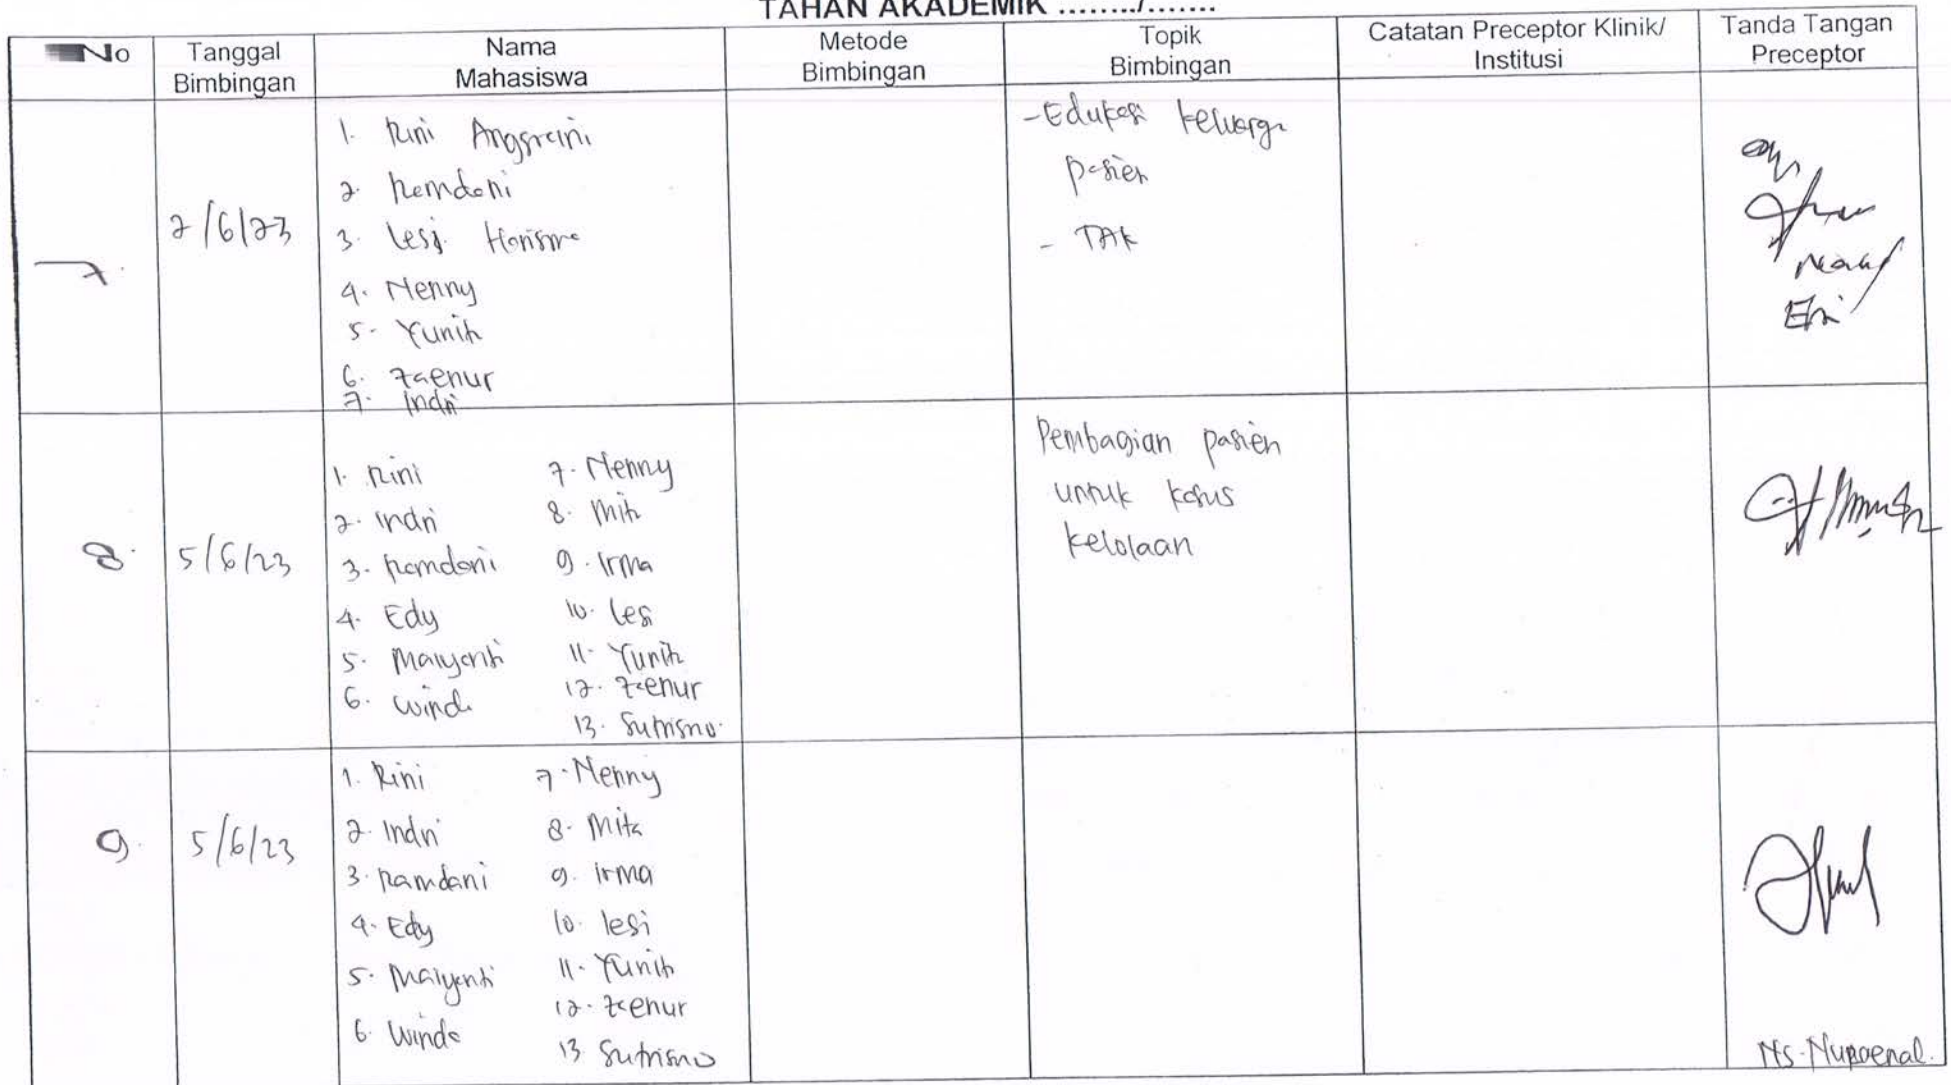 TAHAN AKADEMIK ......../.......
No
Tanggal
Bimbingan
Nama
Mahasiswa
Metode
Bimbingan
Topik
Bimbingan
Catatan Preceptor Klinik/
Institusi
Tanda Tangan
Preceptor
7.
2/6/23
1. Rini Anggraini
2. Ramdani
3. Lesi
4. Nenny
5. Yunita
6. Zaenur
7. Indri
- Edukasi keluarga
pasien
- TAK
8.
5/6/23
1. Rini
2. Indri
3. Ramdani
4. Edy
5. Maiyanti
6. Winda
7. Nenny
8. Mita
9. Irma
10. Lesi
11. Yunita
12. Zaenur
13. Sutrisno
Pembagian pasien
untuk kasus
kelolaan
9.
5/6/23
1. Rini
2. Indri
3. Ramdani
4. Edy
5. Maiyanti
6. Winda
7. Nenny
8. Mita
9. Irma
10. lesi
11. Yunita
12. Zaenur
13 Sutrisno
Ns.